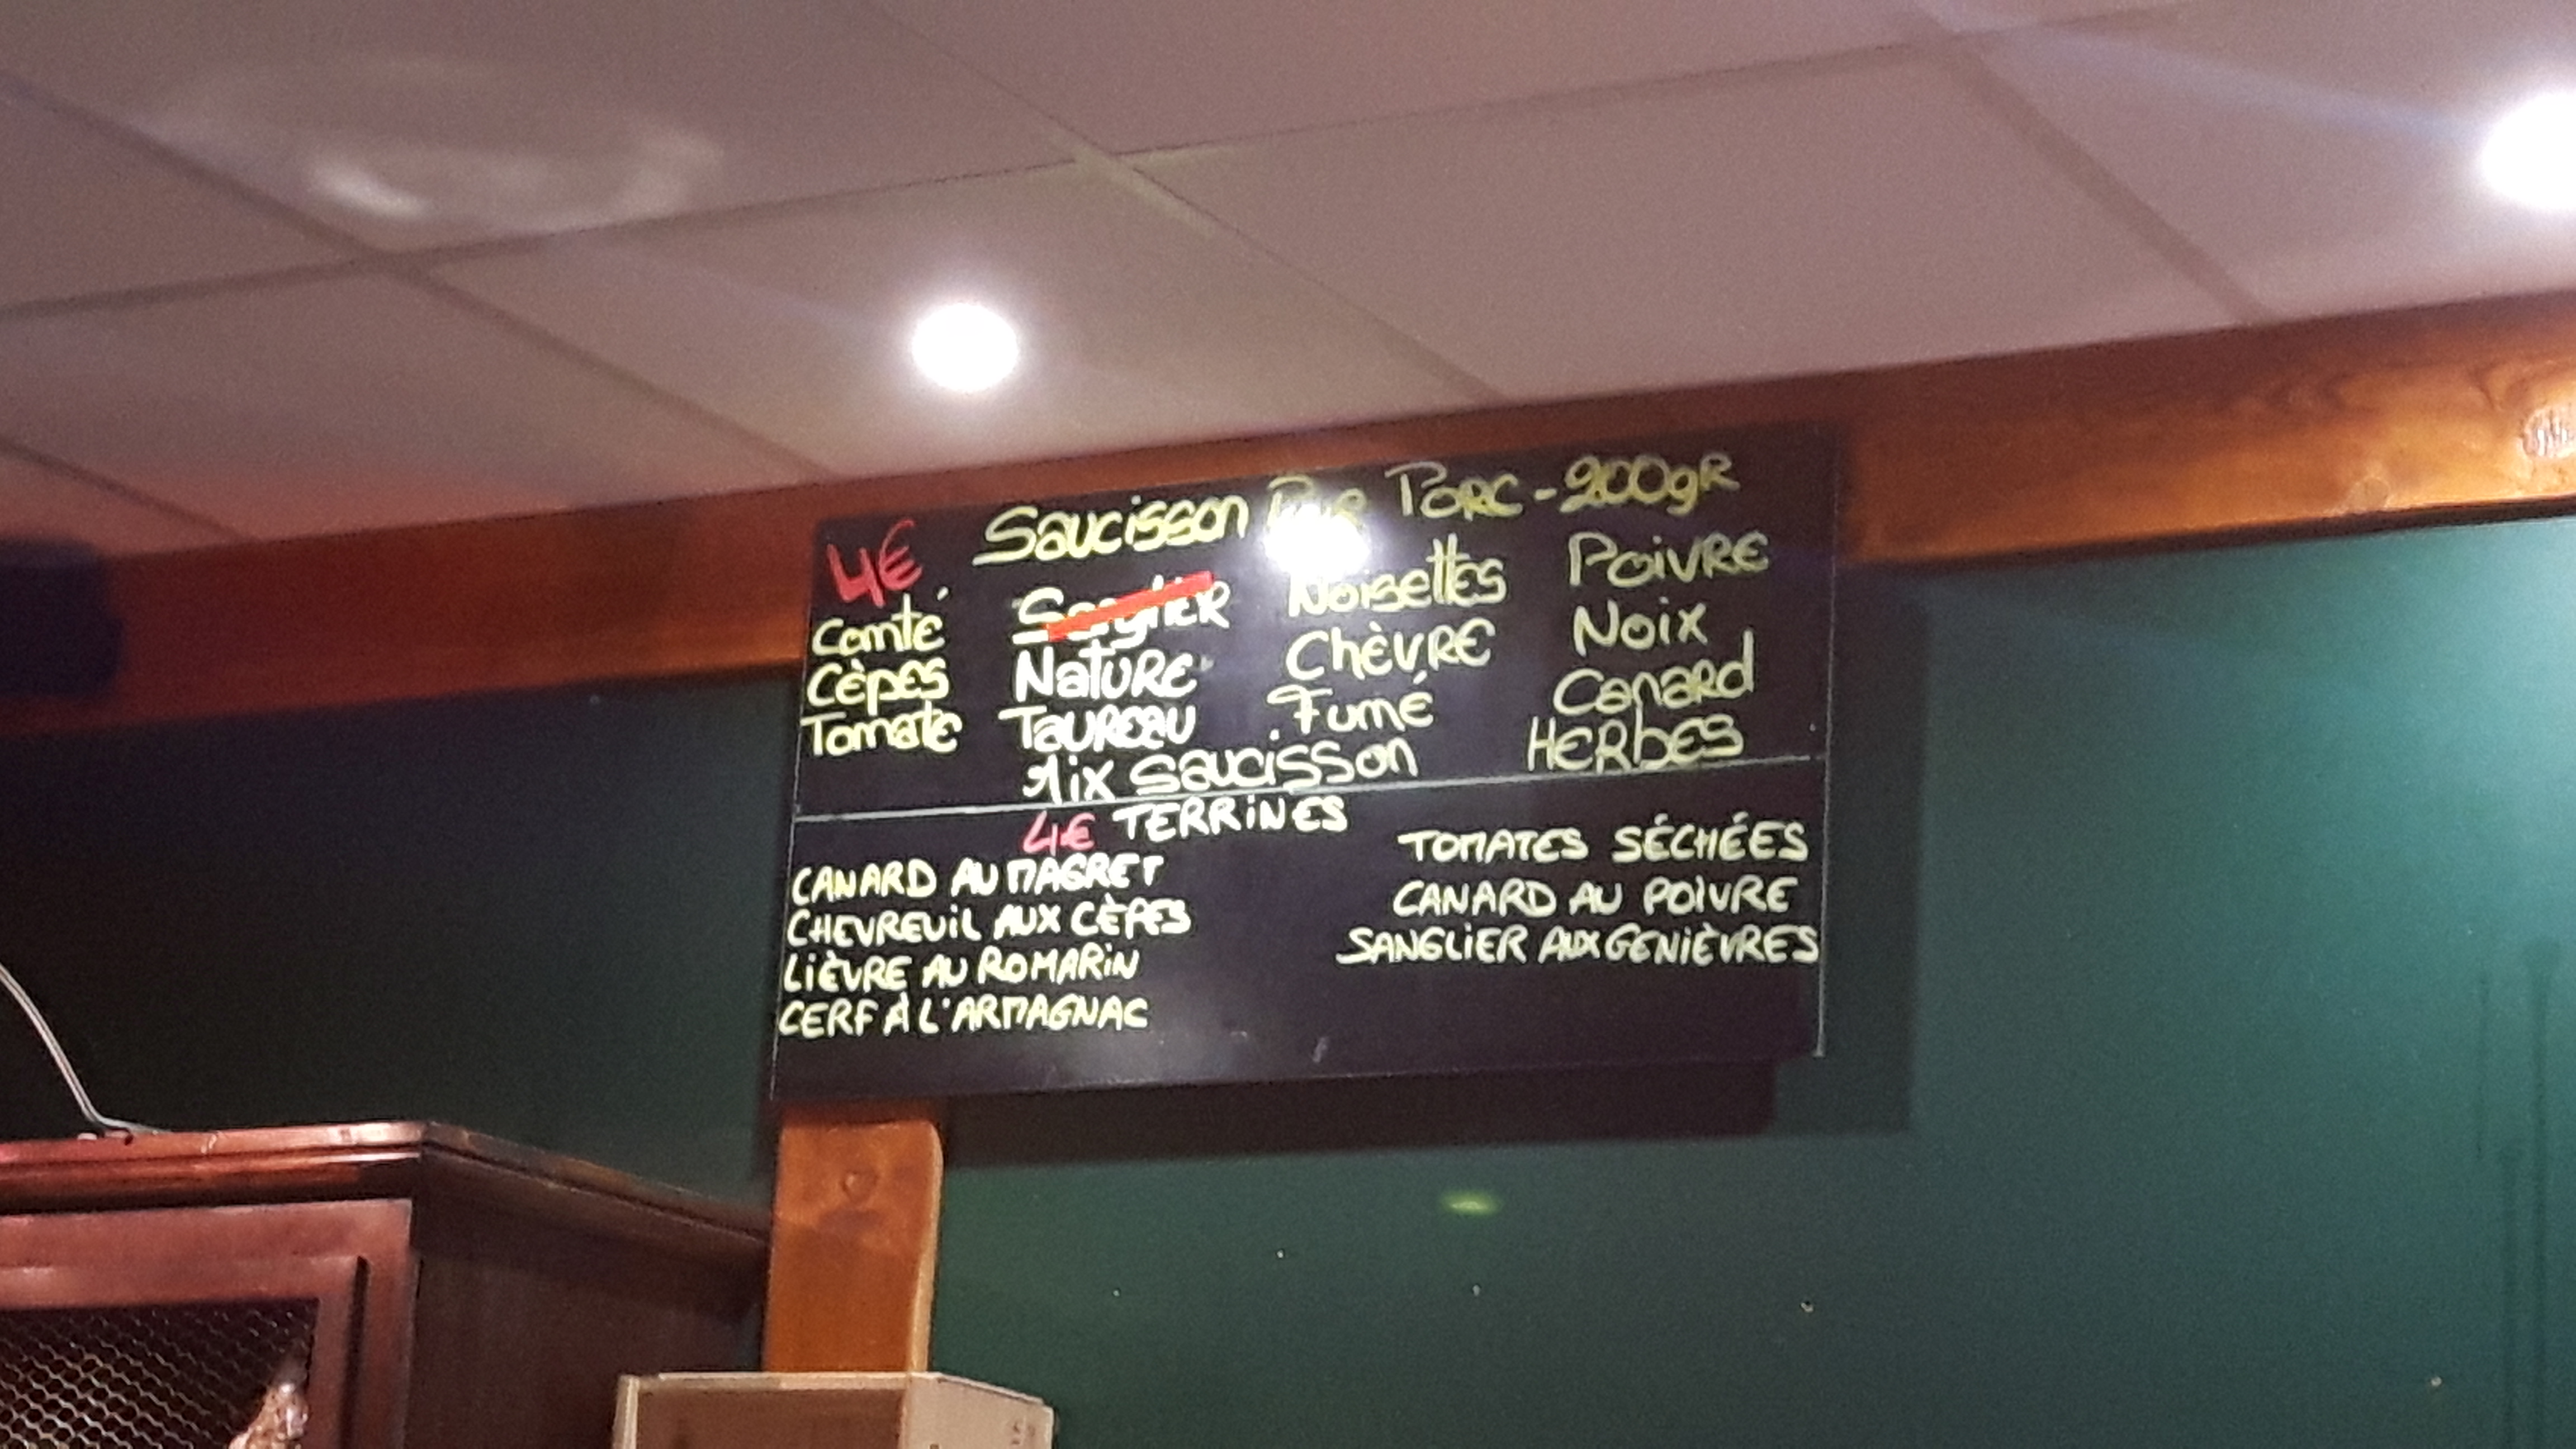 4€ Saucisson Pur Porc - 200gR
Comté Sanglier Noisettes Poivre
Cèpes Nature Chèvre Noix
Tomate Taureau Fumé Canard
Mix Saucisson Herbes
4€ TERRINES
CANARD AU MAGRET TOMATES SÉCHÉES
CHEVREUIL AUX CÈPES CANARD AU POIVRE
LIÈVRE AU ROMARIN SANGLIER AUX GENIÈVRES
CERF À L'ARMAGNAC